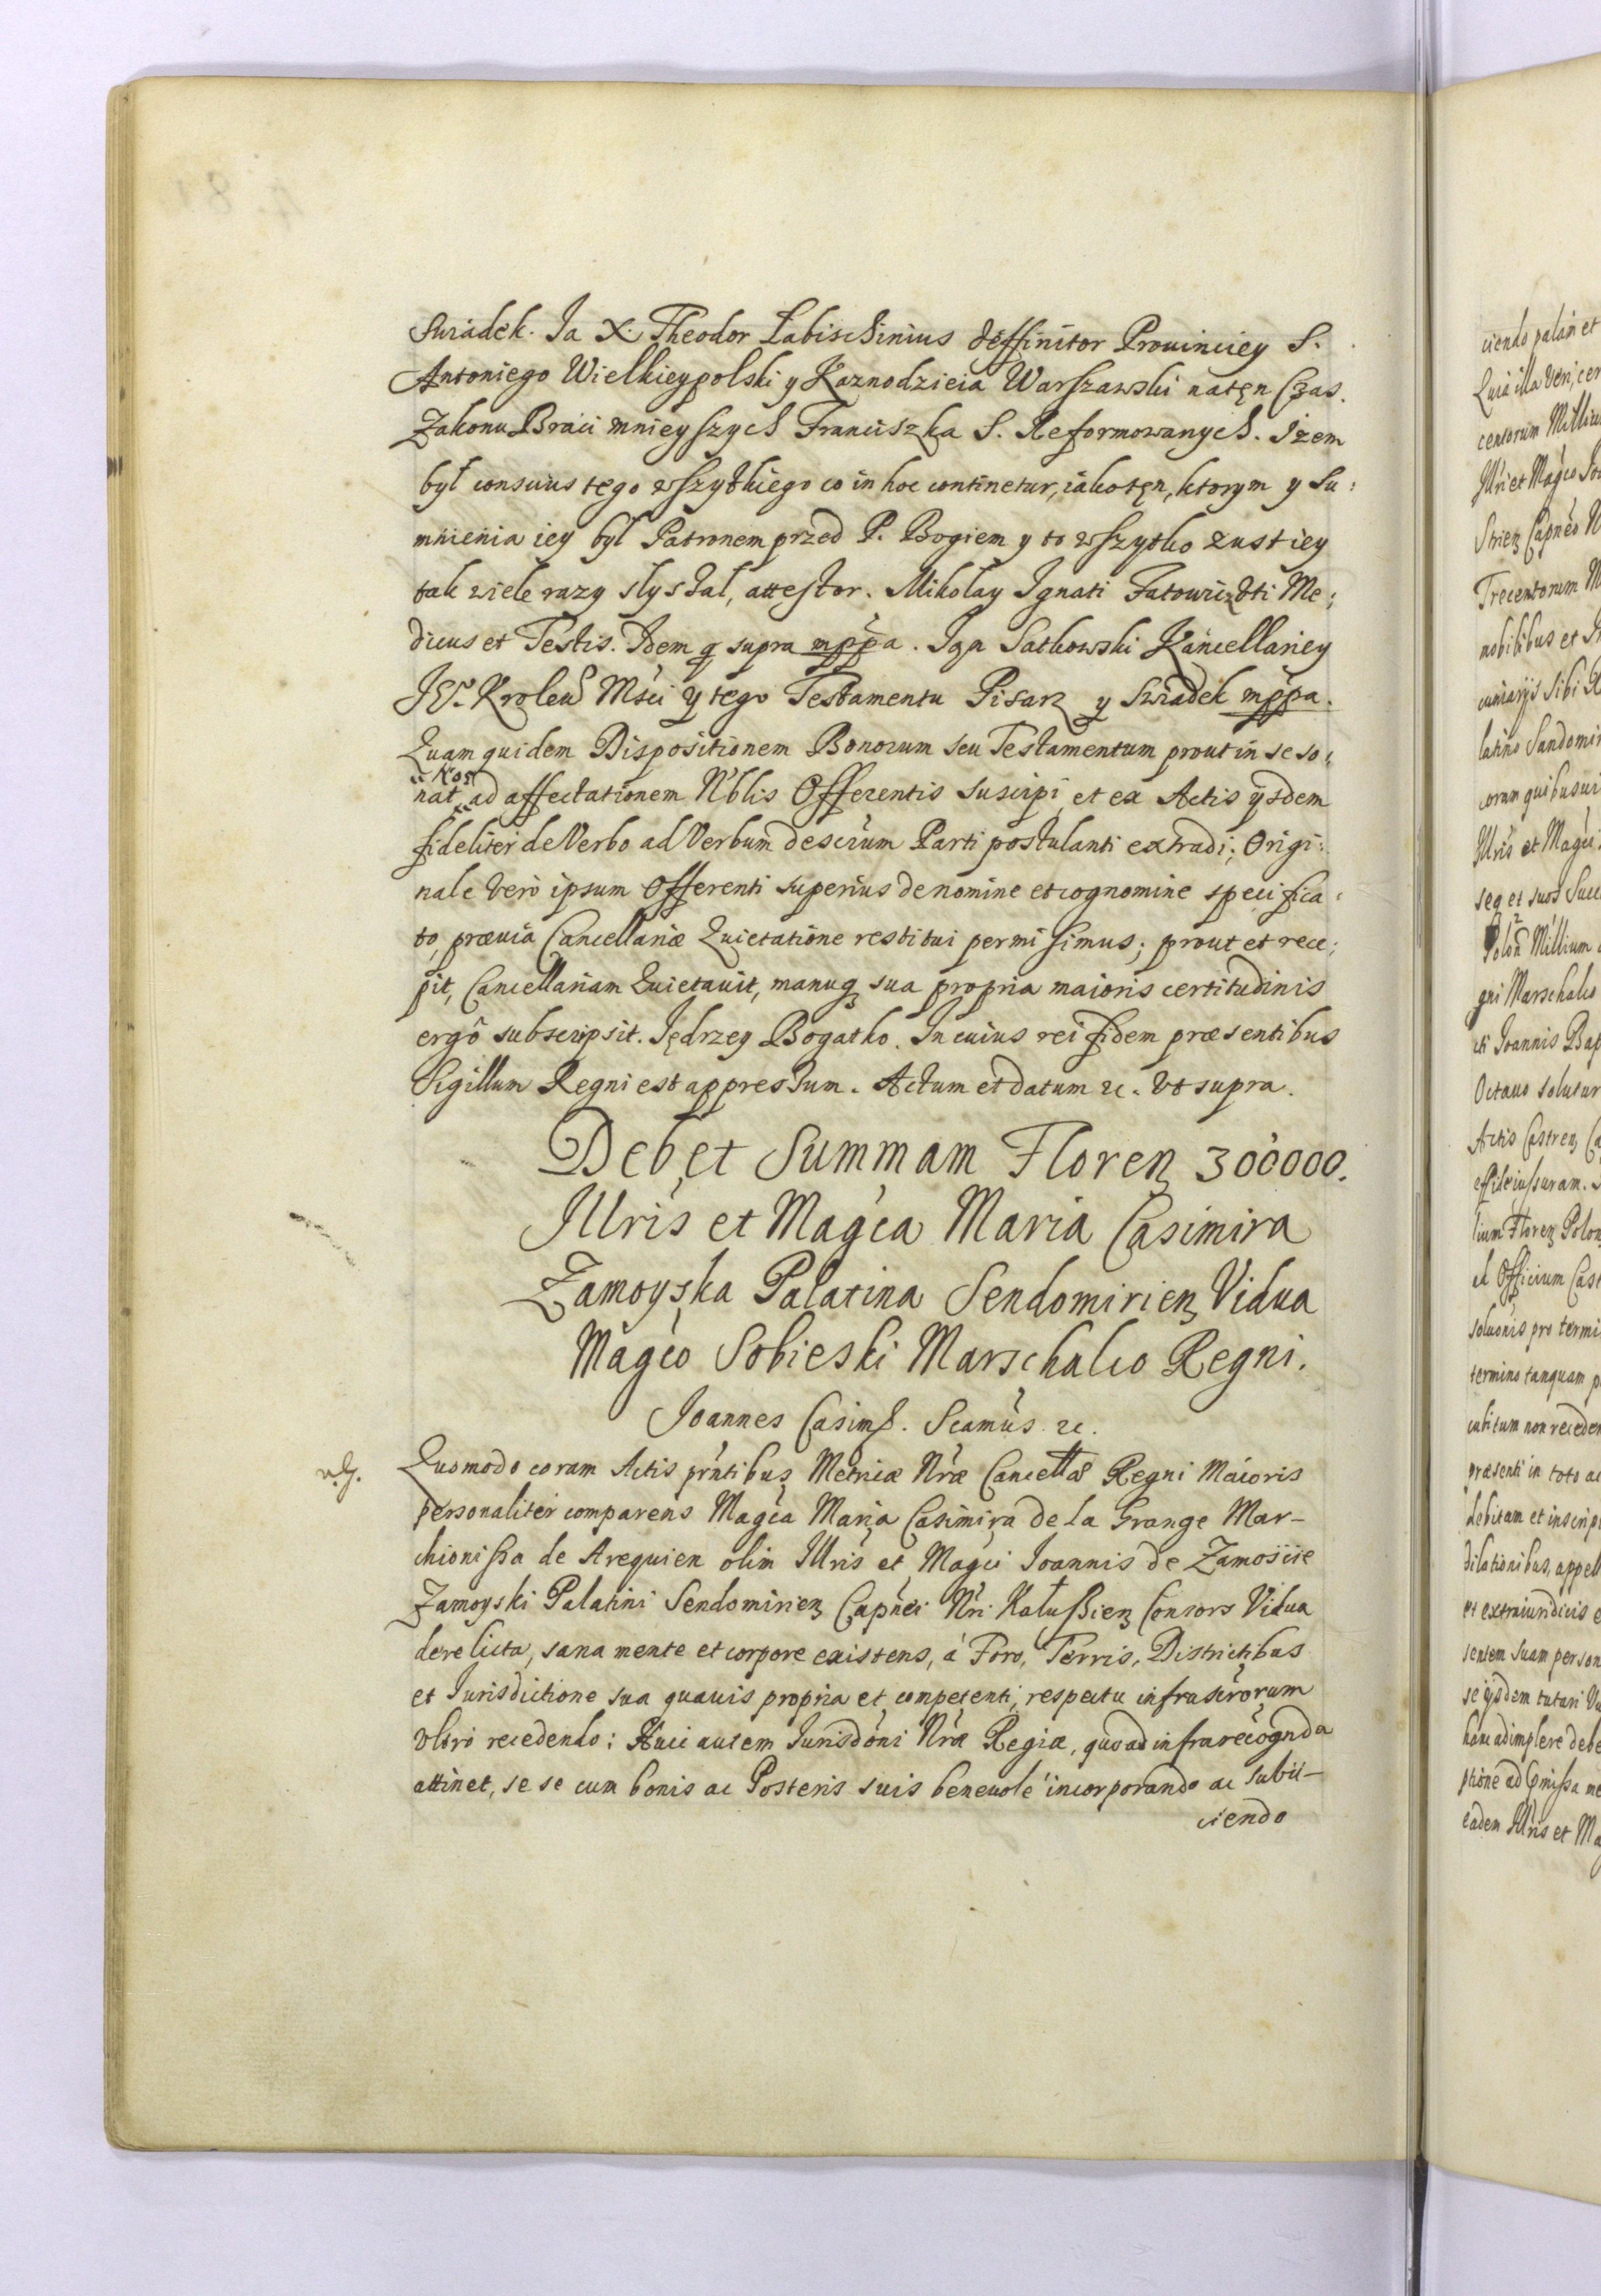 Swiadek. Ja X. Theodor Łabischinius deffinitor Prouinciey S.
Antoniego Wielkieypolski y Kaznodzieia Warszawski natęn Czas.
Zakonu Braci mnieyszych Franciszka S. Reformowanych. Iżem
był conscius tego wszytkiego co in hoc continetur, iakotęn, ktorym y Su:
mnienia iey był Patronem przed P. Bogiem y to wszytko zust iey
tak wiele razy słyszał, attestor. Mikołay Ignati Me:
dicus et Testis. Idem q supra mppa. Iga Satkowski Kancellariey
Krolew Mści y tego Testamentu Pisarz y Swiadek mppa.
Quam quidem Dispositionem Bonorum seu Testamentum prout in se so:
nat, Nos ad affectationem Nblis Offerentis suscipi et ex Actis ijsdem
fideliter de Verbo ad Verbum descrum Parti postulanti extradi; Origi:
nale Verò ipsum Offerenti superius de nomine et cognomine specifica:
to, præuia Cancellariæ Quietatione restitui permisimus; prout et rece:
pit, Cancellariam Quietauit, manuq sua propria maioris certitudinis
ergô subscripsit. Jędrzey Bogatko. In cuius rei fidem præsentibus
Sigillum Regni est appressum. Actum et datum rc. Vt supra.
Debet Summam Floren 300000.
Illris et Magca Maria Casimira
Zamoyska Palatina Sendomirien Vidua
Magco Sobieski Marschalco Regni.
Joannes Casims. Scamus rc.
Quomodo coram Actis prntibus Metricæ Nræ Cancellæ Regni Maioris
personaliter comparens Magca Maria Casimira de la Grange Mar-
chionissa de Arequien olim Illris et Magci Joannis de Zamoscie
Zamoyski Palatini Sendomirien Capnei Nri Kałussien Consors Vidua
derelicta, sana mente et corpore existens, á Foro, Terris, Districtibus
et Jurisdictione sua quauis propria et competenti, respectu infrascrorum
vltro recedendo; Huic autem Jurisdoni Nræ Regiæ, quo ad infrarecognda
attinet, se se cum bonis ac Posteris suis beneuolé incorporando ac subii-
ciendo
ciendo palàm et
censorum Milliu
Illri et Magco Jo
Strien Capneo N
Trecentorum M
nobilibus et
latino Sandomi
coram quibusui
Illris et Magci
seq et suos Succ
Polon Millium
gni Marschalco
cti Joannis Bap
Octauo solutur
Actis Castren Ca
lium Floren Polon
et Officium Cast
soluonis pro termi
termino tanquam p
cubitum non receden
præsenti in toto ac
debitam et inscrip
dilationibus, appell
et extraiuridicis
sentem suam person
se ijsdem tutari
hanc adimplere debe
eadem Illris et Ma